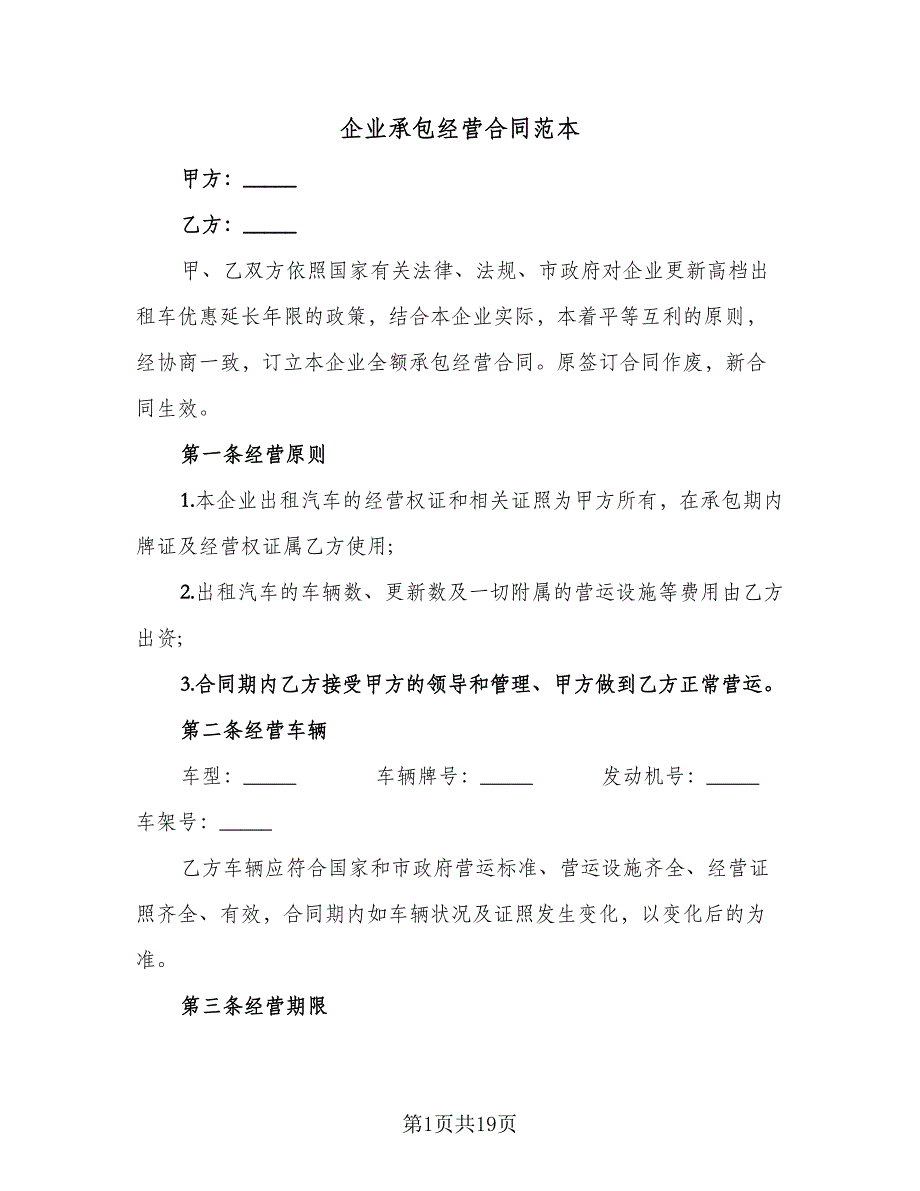 企业承包经营合同范本
甲方：_____
乙方：_____
甲、乙双方依照国家有关法律、法规、市政府对企业更新高档出
租车优惠延长年限的政策，结合本企业实际，本着平等互利的原则，
经协商一致，订立本企业全额承包经营合同。原签订合同作废，新合
同生效。
第一条经营原则
1.本企业出租汽车的经营权证和相关证照为甲方所有，在承包期内
牌证及经营权证属乙方使用;
2.出租汽车的车辆数、更新数及一切附属的营运设施等费用由乙方
出资;
3.合同期内乙方接受甲方的领导和管理、甲方做到乙方正常营运。
第二条经营车辆
车型：_____ 车辆牌号：_____ 发动机号：_____
车架号：_____
乙方车辆应符合国家和市政府营运标准、营运设施齐全、经营证
照齐全、有效，合同期内如车辆状况及证照发生变化，以变化后的为
准。
第三条经营期限
第1页共19页